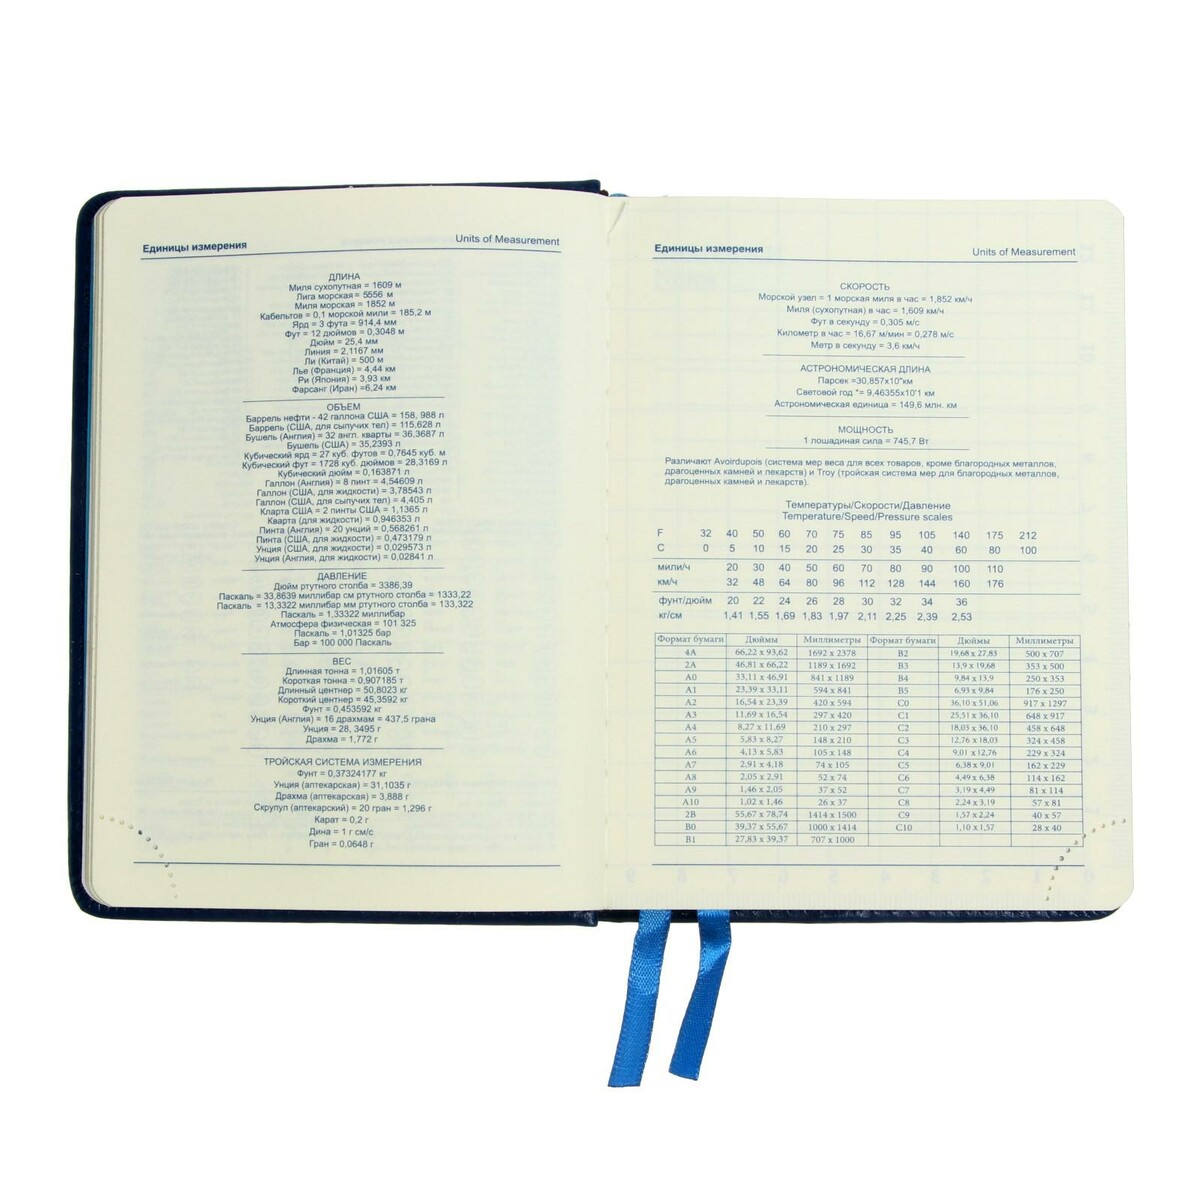 Единицы измерения Units of Measurement
ДЛИНА
Миля сухопутная = 1609 м
Лига морская = 5556 м
Миля морская = 1852 м
Кабельтов = 0,1 морской мили = 185,2 м
Ярд = 3 фута = 914,4 мм
Фут = 12 дюймов = 0,3048 м
Дюйм = 25,4 мм
Линия = 2,1167 мм
Ли (Китай) = 500 м
Лье (Франция) = 4,44 км
Ри (Япония) = 3,93 км
Фарсанг (Иран) =6,24 км
ОБЪЕМ
Баррель нефти - 42 галлона США = 158, 988 л
Баррель (США, для сыпучих тел) = 115,628 л
Бушель (Англия) = 32 англ. кварты = 36,3687 л
Бушель (США) = 35,2393 л
Кубический ярд = 27 куб. футов = 0,7645 куб. м
Кубический фут = 1728 куб. дюймов = 28,3169 л
Кубический дюйм = 0,163871 л
Галлон (Англия) = 8 пинт = 4,54609 л
Галлон (США, для жидкости) = 3,78543 л
Галлон (США, для сыпучих тел) = 4,405 л
Кларта США = 2 пинты США = 1,1365 л
Кварта (для жидкости) = 0,946353 л
Пинта (Англия) = 20 унций = 0,568261 л
Пинта (США, для жидкости) = 0,473179 л
Унция (США, для жидкости) = 0,029573 л
Унция (Англия, для жидкости) = 0,02841 л
ДАВЛЕНИЕ
Дюйм ртутного столба = 3386,39
Паскаль = 33,8639 миллибар см ртутного столба = 1333,22
Паскаль = 13,3322 миллибар мм ртутного столба = 133,322
Паскаль = 1,33322 миллибар
Атмосфера физическая = 101 325
Паскаль = 1,01325 бар
Бар = 100 000 Паскаль
ВЕС
Длинная тонна = 1,01605 т
Короткая тонна = 0,907185 т
Длинный центнер = 50,8023 кг
Короткий центнер = 45,3592 кг
Фунт = 0,453592 кг
Унция (Англия) = 16 драхмам = 437,5 грана
Унция = 28, 3495 г
Драхма = 1,772 г
ТРОЙСКАЯ СИСТЕМА ИЗМЕРЕНИЯ
Фунт = 0,37324177 кг
Унция (аптекарская) = 31,1035 г
Драхма (аптекарская) = 3,888 г
Скрупул (аптекарский) = 20 гран = 1,296 г
Карат = 0,2 г
Дина = 1 г см/с
Гран = 0,0648 г
Единицы измерения Units of Measurement
СКОРОСТЬ
Морской узел = 1 морская миля в час = 1,852 км/ч
Миля (сухопутная) в час = 1,609 км/ч
Фут в секунду = 0,305 м/с
Километр в час = 16,67 м/мин = 0,278 м/с
Метр в секунду = 3,6 км/ч
АСТРОНОМИЧЕСКАЯ ДЛИНА
Парсек =30,857x10"км
Световой год "= 9,46355x10'1 км
Астрономическая единица = 149,6 млн. км
МОЩНОСТЬ
1 лошадиная сила = 745,7 Вт
Различают Avoirdupois (система мер веса для всех товаров, кроме благородных металлов,
драгоценных камней и лекарств) и Troy (тройская система мер для благородных металлов,
драгоценных камней и лекарств).
Температуры/Скорости/Давление
Temperature/Speed/Pressure scales
F 32 40 50 60 70 75 85 95 105 140 175 212
C 0 5 10 15 20 25 30 35 40 60 80 100
мили/ч 20 30 40 50 60 70 80 90 100 110
км/ч 32 48 64 80 96 112 128 144 160 176
фунт/дюйм 20 22 24 26 28 30 32 34 36
кг/см 1,41 1,55 1,69 1,83 1,97 2,11 2,25 2,39 2,53
Формат бумаги Дюймы Миллиметры Формат бумаги Дюймы Миллиметры
4A 66,22 x 93,62 1692 x 2378 B2 19,68 x 27,83 500 x 707
2A 46,81 x 66,22 1189 x 1692 B3 13,9 x 19,68 353 x 500
A0 33,11 x 46,91 841 x 1189 B4 9,84 x 13,9 250 x 353
A1 23,39 x 33,11 594 x 841 B5 6,93 x 9,84 176 x 250
A2 16,54 x 23,39 420 x 594 C0 36,10 x 51,06 917 x 1297
A3 11,69 x 16,54 297 x 420 C1 25,51 x 36,10 648 x 917
A4 8,27 x 11,69 210 x 297 C2 18,03 x 36,10 458 x 648
A5 5,83 x 8,27 148 x 210 C3 12,76 x 18,03 324 x 458
A6 4,13 x 5,83 105 x 148 C4 9,01 x 12,76 229 x 324
A7 2,91 x 4,18 74 x 105 C5 6,38 x 9,01 162 x 229
A8 2,05 x 2,91 52 x 74 C6 4,49 x 6,38 114 x 162
A9 1,46 x 2,05 37 x 52 C7 3,19 x 4,49 81 x 114
A10 1,02 x 1,46 26 x 37 C8 2,24 x 3,19 57 x 81
2B 55,67 x 78,74 1414 x 1500 C9 1,57 x 2,24 40 x 57
B0 39,37 x 55,67 1000 x 1414 C10 1,10 x 1,57 28 x 40
B1 27,83 x 39,37 707 x 1000